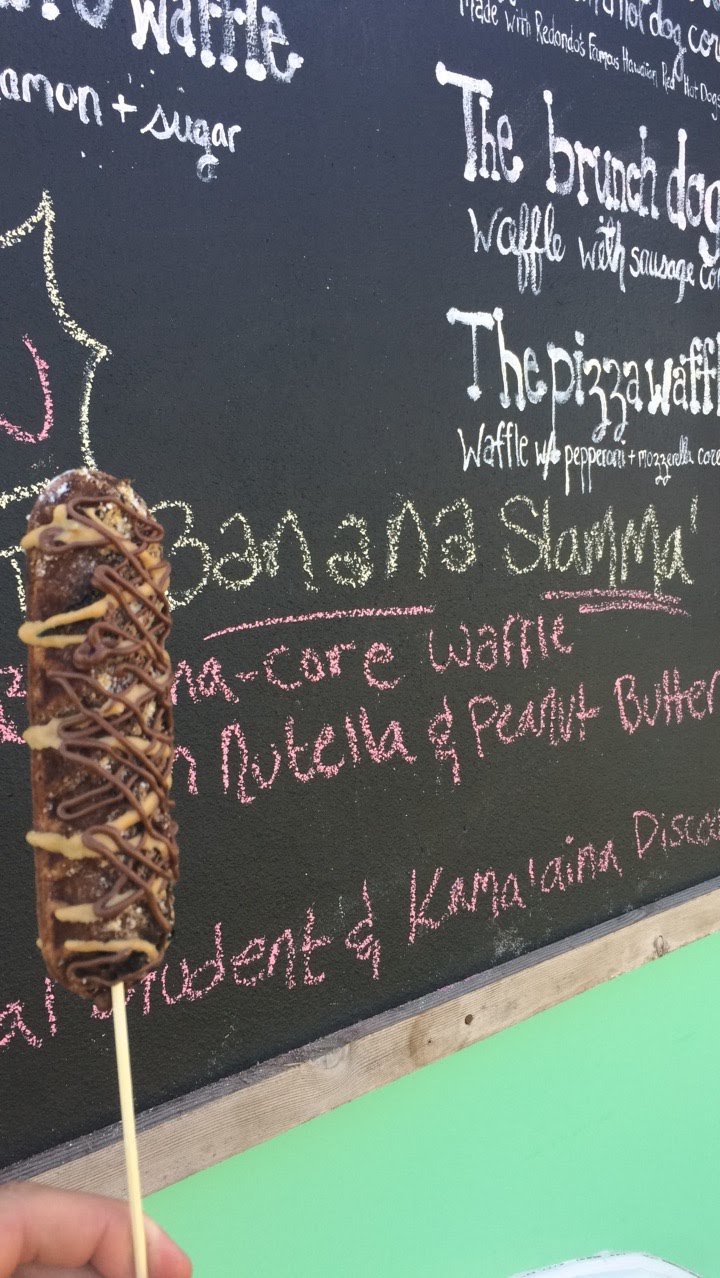 waffle
amon + sugar
hot dog cor
Made with Redondo's Famous Hawaiian Red Hot Dogs
The brunch dog
Waffle with sausage co
The pizza waffl
Waffle w/ pepperoni + mozzerella core
Banana Slamma'
na-core waffle
Nutella & Peanut Butter
al Student & Kama'aina Disco